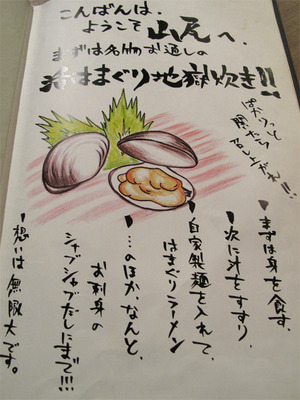 こんばんは、
ようこそ山瓦へ、
まずは名物お通しの
活はまぐり地獄炊き!!
パカッと
開いたら
召し上がれ!!
まずは身を食す、
次に汁をすすり、
自家製麺を入れて、
はまぐりラーメン
…のほか、なんと、
お刺身の
シャブシャブだしにまで!!!
想いは無限大です。